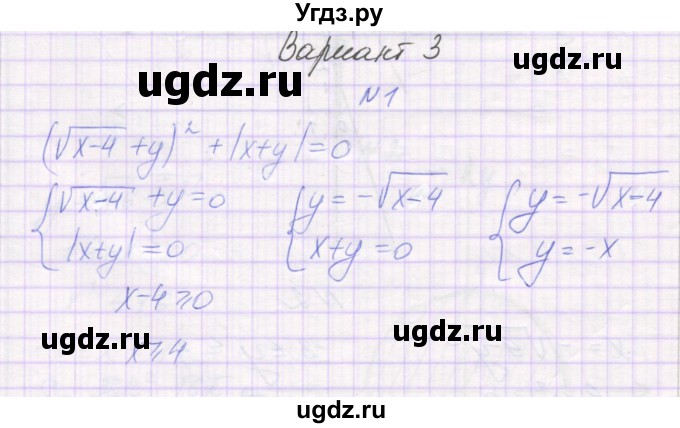 Угдз.ру
Вариант 3
ugdz.ru ugdz.ru
N1
(√x-4 + y)² + |x+y| = 0
{ √x-4 + y = 0 { y = -√x-4 { y = -√x-4
|x+y| = 0 x+y = 0 y = -x
ugdz.ru
x-4 ⩾ 0
ugdz.ru ugdz.ru
x ⩾ 4
ugdz.ru